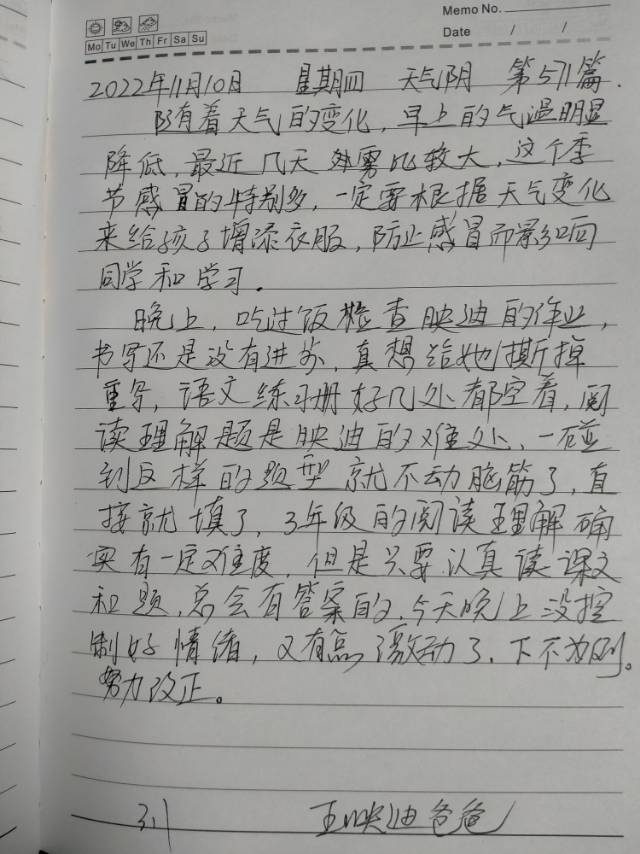 Memo No.
Mo Tu We Th Fr Sa Su
Date / /
2022年11月10日 星期四 天气阴 第571篇.
随着天气的变化,早上的气温明显
降低,最近几天外雾比较大,这个季
节感冒的特别多,一定要根据天气变化
来给孩子增添衣服,防止感冒而影响
同学和学习。
晚上,吃过饭检查映迪的作业,
书写还是没有进步,真想给她撕掉
重写,语文练习册好几处都空着,阅
读理解题是映迪的难处、一碰
到这样的题型就不动脑筋了,直
接就填了,3年级的阅读理解确
实有一定难度,但是只要认真读课文
和题,总会有答案的,今天晚上没控
制好情绪,又有点激动了,下不为例。
努力改正。
3.1 王映迪爸爸